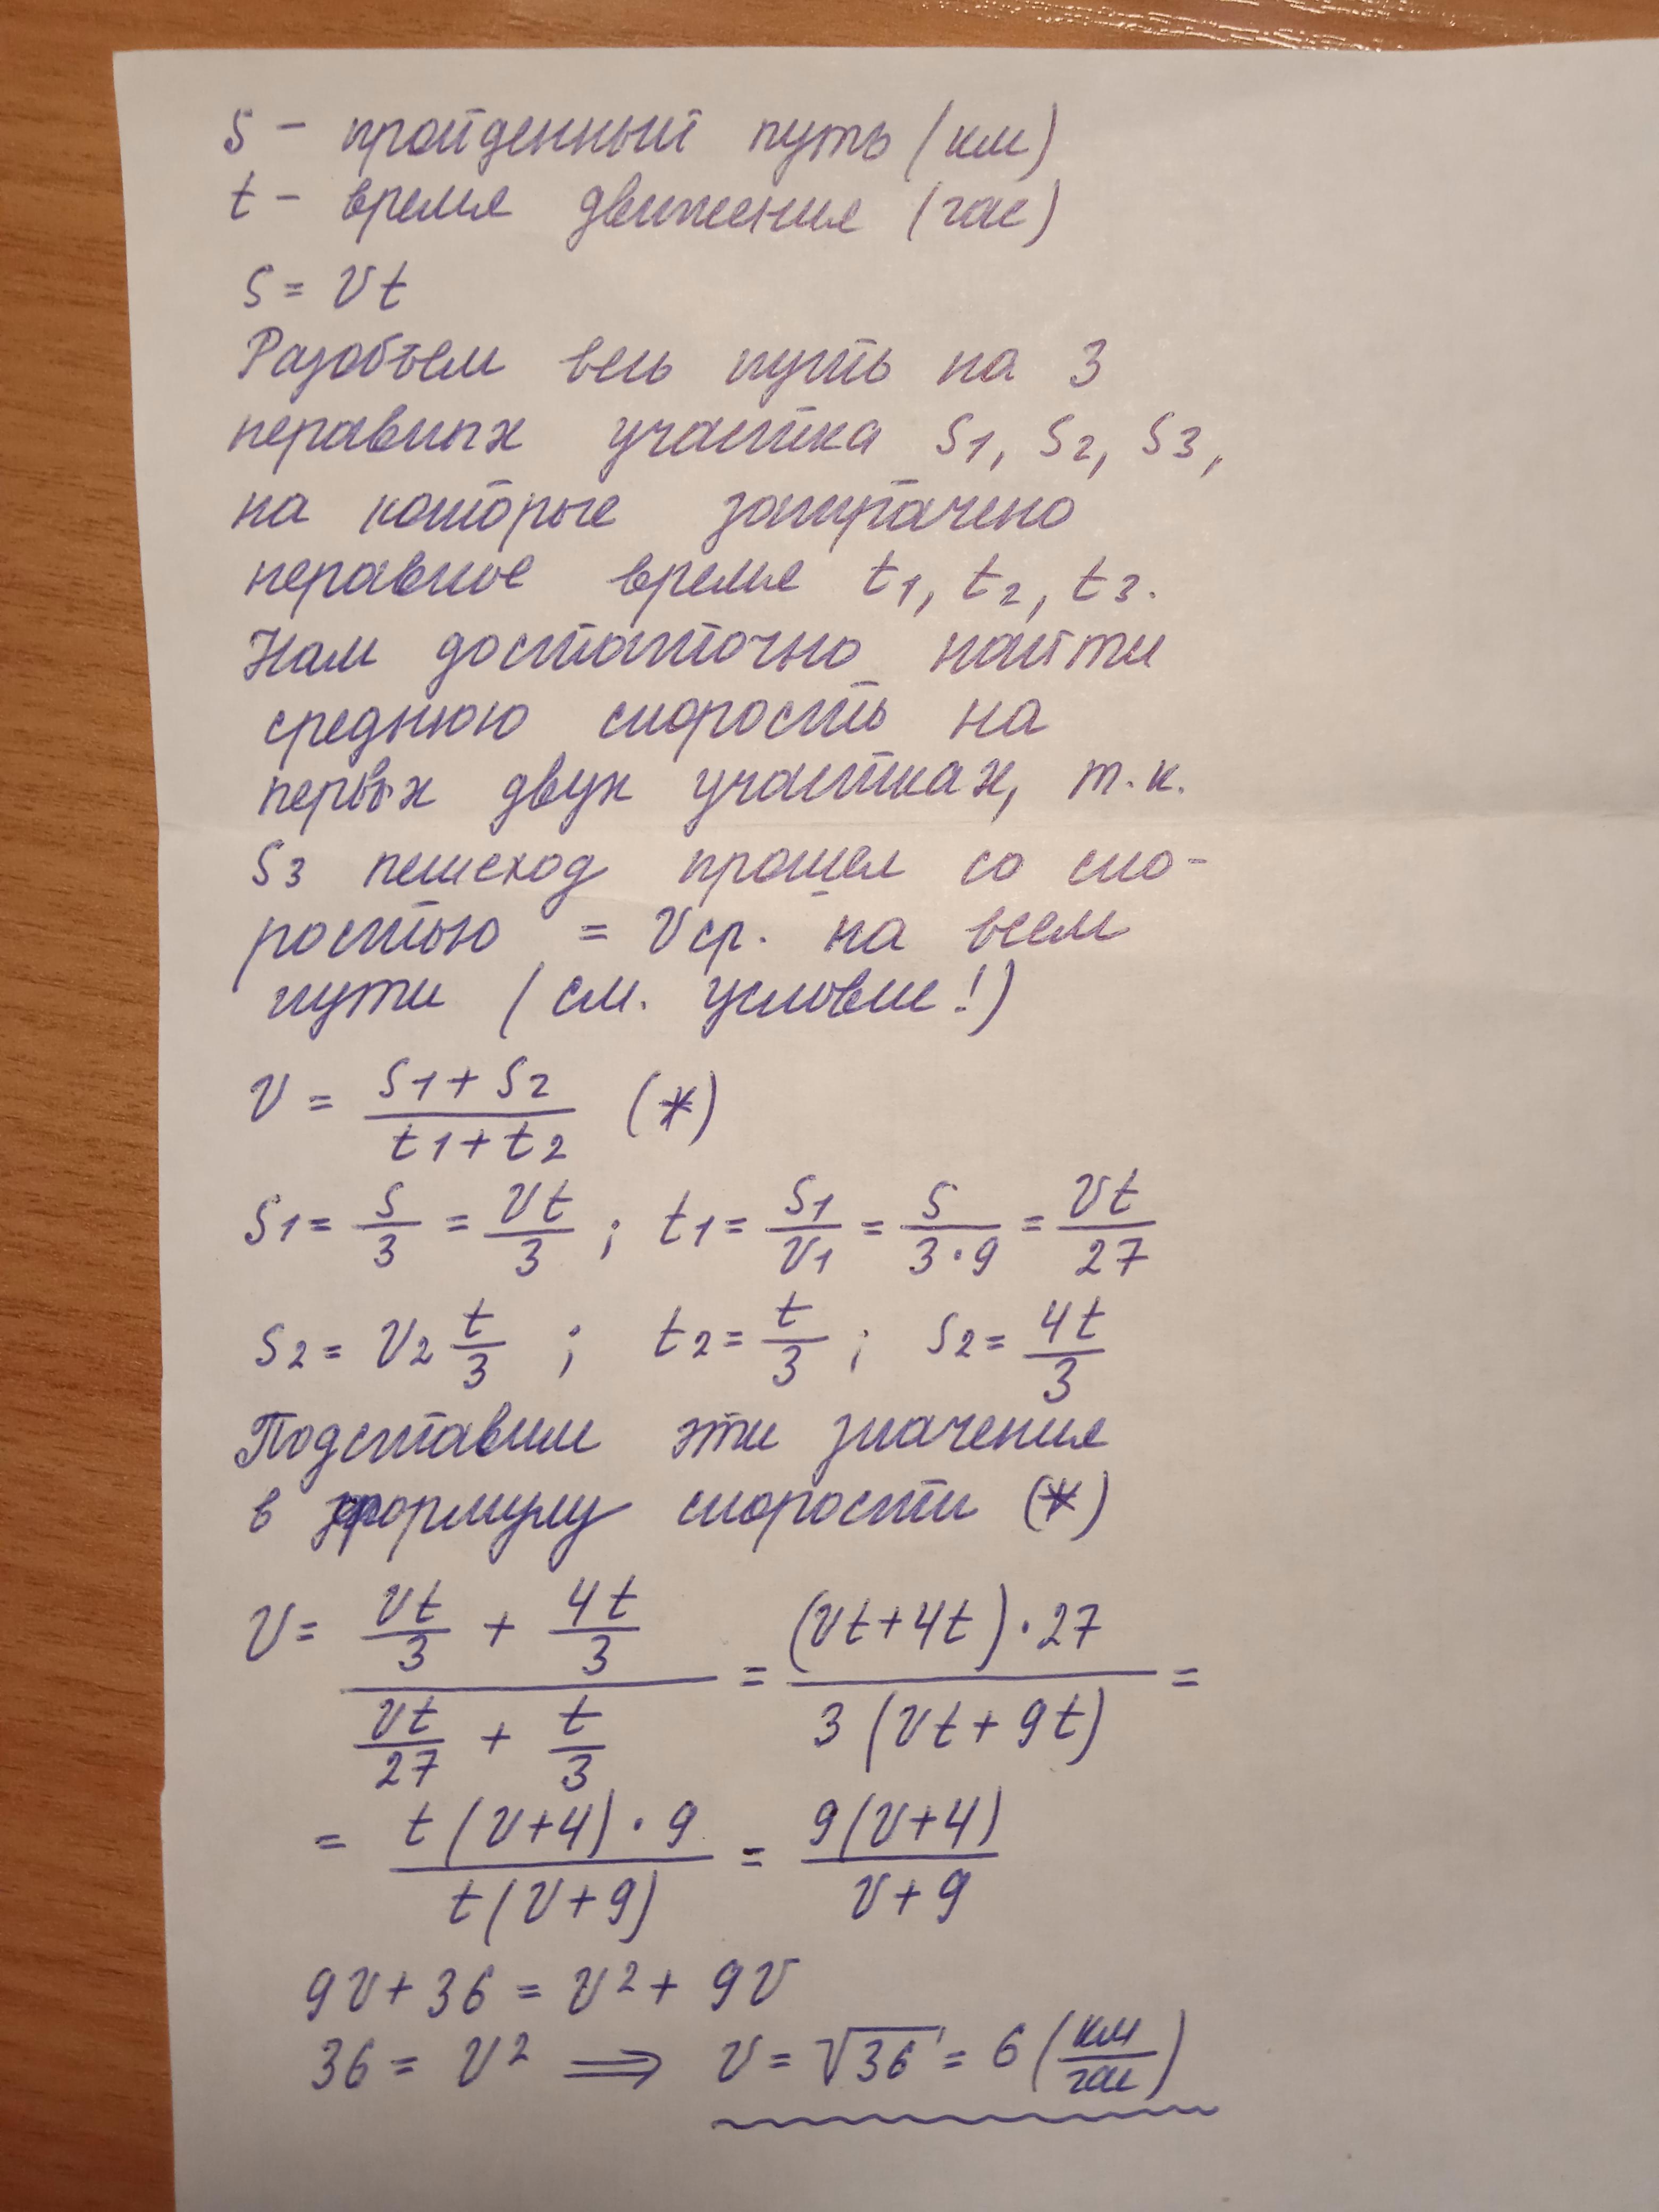 S – пройденный путь (км)
t – время движения (час)
S = Vt
Разобьем весь путь на 3
неравных участка S1, S2, S3,
на которые затрачено
неравное время t1, t2, t3.
Нам достаточно найти
среднюю скорость на
первых двух участках, т.к.
S3 пешеход прошел со ско-
ростью = Vср. на всем
пути (см. условие!)
V = (S1 + S2)/(t1 + t2) (*)
S1 = S/3 = Vt/3 ; t1 = S1/V1 = S/(3·9) = Vt/27
S2 = V2 t/3 ; t2 = t/3 ; S2 = 4t/3
Подставим эти значения
в формулу скорости (*)
V = (Vt/3 + 4t/3)/(Vt/27 + t/3) = ((Vt + 4t)·27)/(3(Vt + 9t)) =
= (t(V+4)·9)/(t(V+9)) = 9(V+4)/(V+9)
9V + 36 = V² + 9V
36 = V² ⟹ V = √36 = 6 (км/час)